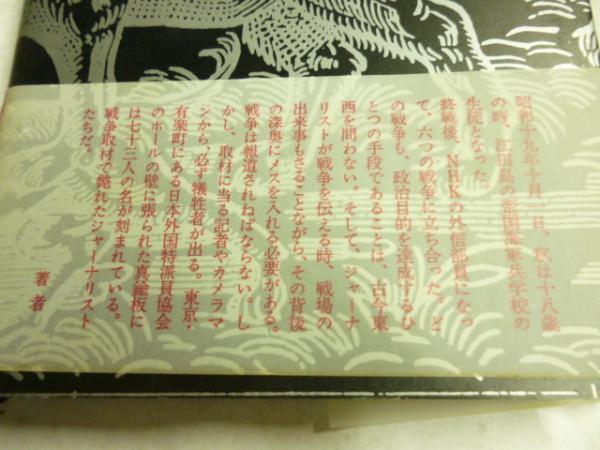 昭和十九年十月一日、私は十八歳
の時、江田島の帝国海軍兵学校の
生徒となった。
終戦後、NHKの外信部員になっ
て、六つの戦争に立ち合った。ど
の戦争も、政治目的を達成するひ
とつの手段であることは、古今東
西を問わない。そして、ジャーナ
リストが戦争を伝える時、戦場の
出来事もさることながら、その背後
の深奥にメスを入れる必要がある。
戦争は報道されねばならない。し
かし、取材に当る記者やカメラマ
ンから、必ず犠牲者が出る。東京・
有楽町にある日本外国特派員協会
のホールの壁に張られた真鍮板に
は七十三人の名が刻まれている。
戦争取材で斃れたジャーナリスト
たちだ。
著者